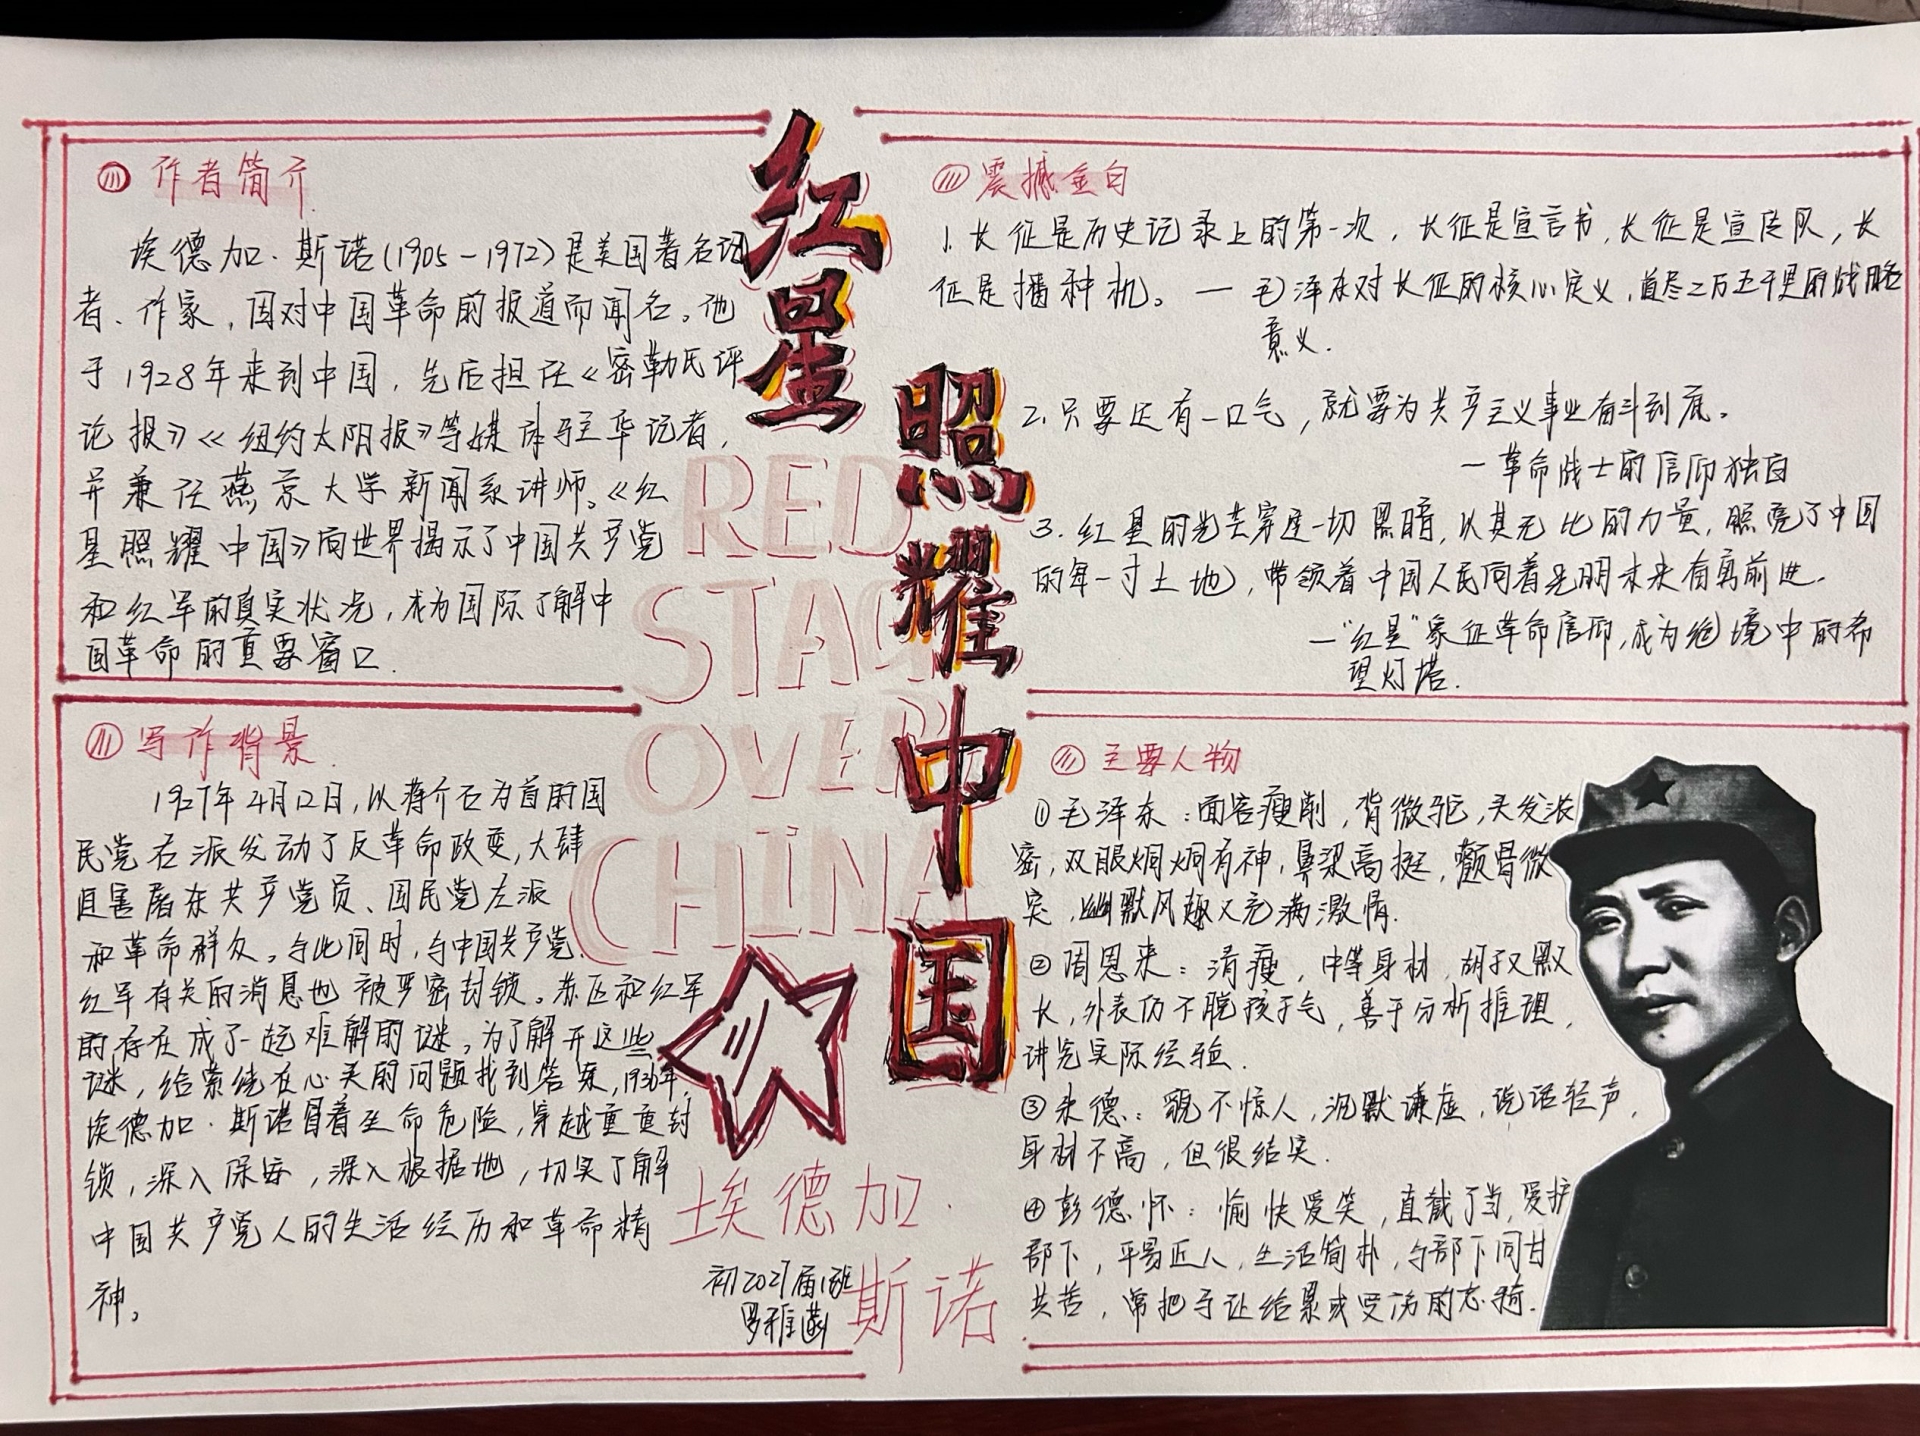 作者简介
埃德加·斯诺(1905-1972)是美国著名记
者、作家，因对中国革命的报道而闻名。他
于1928年来到中国，先后担任《密勒氏评
论报》《纽约太阳报》等媒体驻华记者，
并兼任燕京大学新闻系讲师。《红
星照耀中国》向世界揭示了中国共产党
和红军的真实状况，成为国际了解中
国革命的重要窗口.
写作背景
1927年4月12日，以蒋介石为首的国
民党右派发动了反革命政变，大肆
屠杀共产党员、国民党左派
和革命群众。与此同时，与中国共产党、
红军有关的消息也被严密封锁。苏区和红军
的存在成了一起难解的谜。为了解开这些
谜，给萦绕在心头的问题找到答案，1936年，
埃德加·斯诺冒着生命危险，穿越重重封
锁，深入保安，深入根据地，切实了解
中国共产党人的生活经历和革命精
神。
红星
照耀中国
RED
STAR
OVER
CHINA
埃德加·
斯诺
初2027届1班
震撼金句
1.长征是历史记录上的第一次，长征是宣言书，长征是宣传队，长
征是播种机。—毛泽东对长征的核心定义，道尽二万五千里的战略
意义.
2.只要还有一口气，就要为共产主义事业奋斗到底。
—革命战士的信仰独白
3.红星的光芒穿透一切黑暗，以其无比的力量，照亮了中国
的每一寸土地，带领着中国人民向着光明未来奋勇前进.
—"红星"象征革命信仰，成为绝境中的希
望灯塔.
主要人物
①毛泽东：面容瘦削，背微驼，头发浓
密，双眼炯炯有神，鼻梁高挺，颧骨微
突，幽默风趣又充满激情.
②周恩来：清瘦，中等身材，胡子又黑又
长，外表仍不脱孩子气，善于分析推理，
讲究实际经验.
③朱德：貌不惊人，沉默谦虚，说话轻声，
身材不高，但很结实.
④彭德怀：愉快爱笑，直截了当，爱护
部下，平易近人，生活简朴，与部下同甘
共苦，常把马让给累或受伤的志骑.